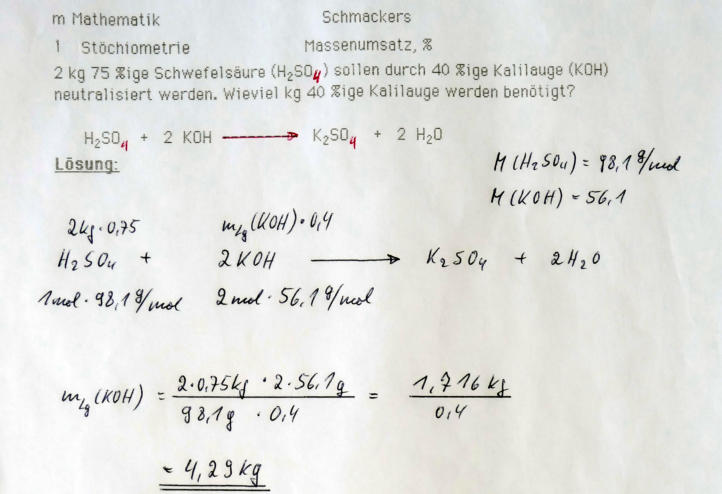 m Mathematik Schmackers
1 Stöchiometrie Massenumsatz, %
2 kg 75 %ige Schwefelsäure (H₂SO₄) sollen durch 40 %ige Kalilauge (KOH)
neutralisiert werden. Wieviel kg 40 %ige Kalilauge werden benötigt?
H₂SO₄ + 2 KOH ⟶ K₂SO₄ + 2 H₂O
Lösung:
M(H₂SO₄) = 98,1 g/mol
M(KOH) = 56,1
2kg · 0,75 m/g(KOH) · 0,4
H₂SO₄ + 2 KOH ⟶ K₂SO₄ + 2 H₂O
1 mol · 98,1 g/mol 2 mol · 56,1 g/mol
m/g(KOH) = 2·0,75kg · 2·56,1g / 98,1g · 0,4 = 1,716 kg / 0,4
= 4,29 kg